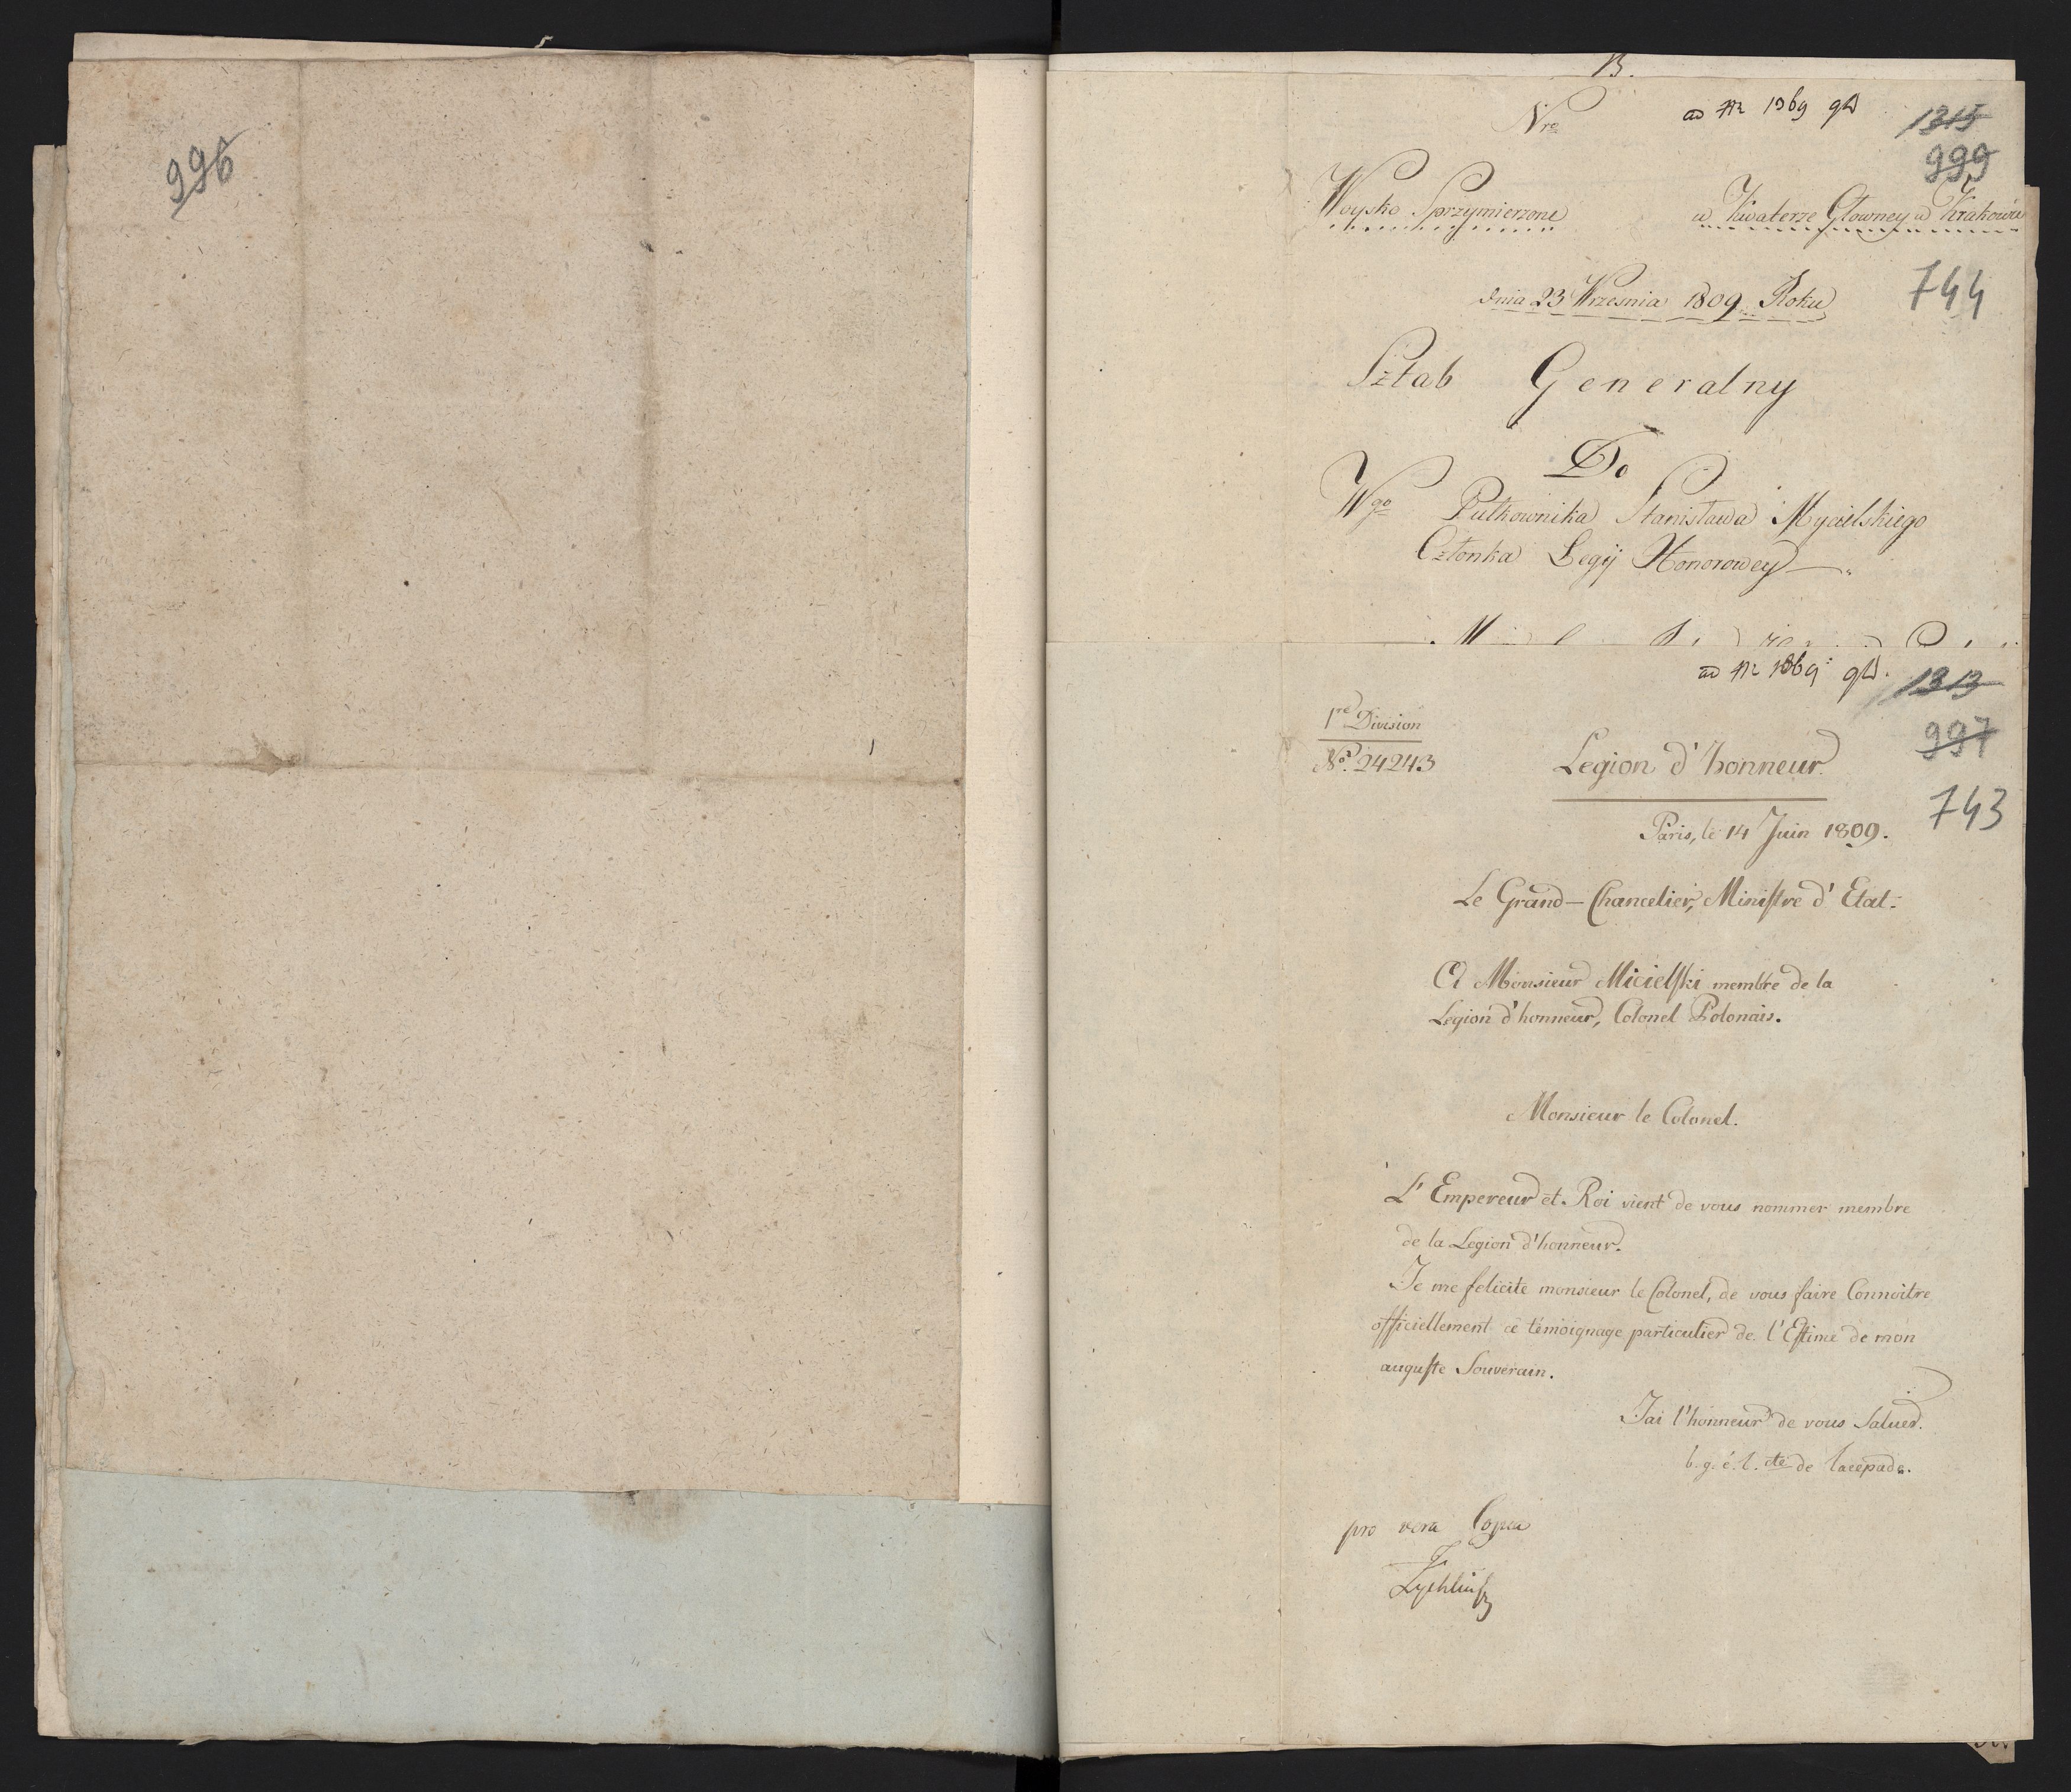 996
B.
Nro
ad Nr 1369 gD
1315
999
Woysko Sprzymierzone
w Kwaterze Głowney w Krakowie
dnia 23 Wrzesnia 1809 Roku
744
Sztab Generalny
Do
Wgo Pułkownika Stanisława Mycielskiego
Członka Legij Honorowey
ad Nr 1369 gD.
1313
1re Division
No. 24243
997
Legion d'honneur.
743
Paris, le 14 Juin 1809.
Le Grand-Chancelier, Ministre d'Etat:
A Monsieur Micielski membre de la
Legion d'honneur, Colonel Polonais.
Monsieur le Colonel.
L'Empereur et Roi vient de vous nommer membre
de la Legion d'honneur.
Je me felicite monsieur le Colonel, de vous faire Connoitre
officiellement ce témoignage particulier de l'Estime de mon
auguste Souverain.
J'ai l'honneur de vous Saluer.
b. g. é. l. cte de lacepade.
pro vera Copia